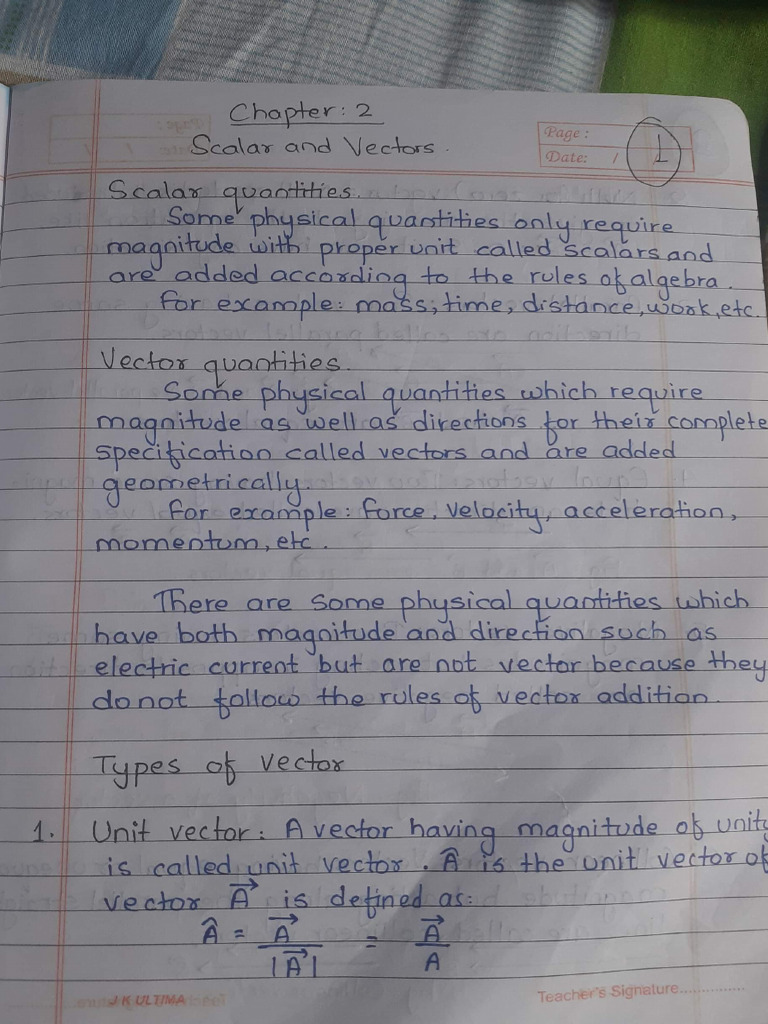 Chapter: 2
Scalar and Vectors.
Page:
Date: /
1
Scalar quantities.
Some physical quantities only require
magnitude with proper unit called scalars and
are added according to the rules of algebra.
for example: mass, time, distance, work, etc.
Vector quantities.
Some physical quantities which require
magnitude as well as directions for their complete
specification called vectors and are added
geometrically.
for example: force, velocity, acceleration,
momentum, etc.
There are some physical quantities which
have both magnitude and direction such as
electric current but are not vector because they
do not follow the rules of vector addition.
Types of vector
1. Unit vector: A vector having magnitude of unity
is called unit vector. Â is the unit vector of
vector A⃗ is defined as:
Â = A⃗ / |A⃗| = A⃗ / A
JK ULTIMA
Teacher's Signature...............